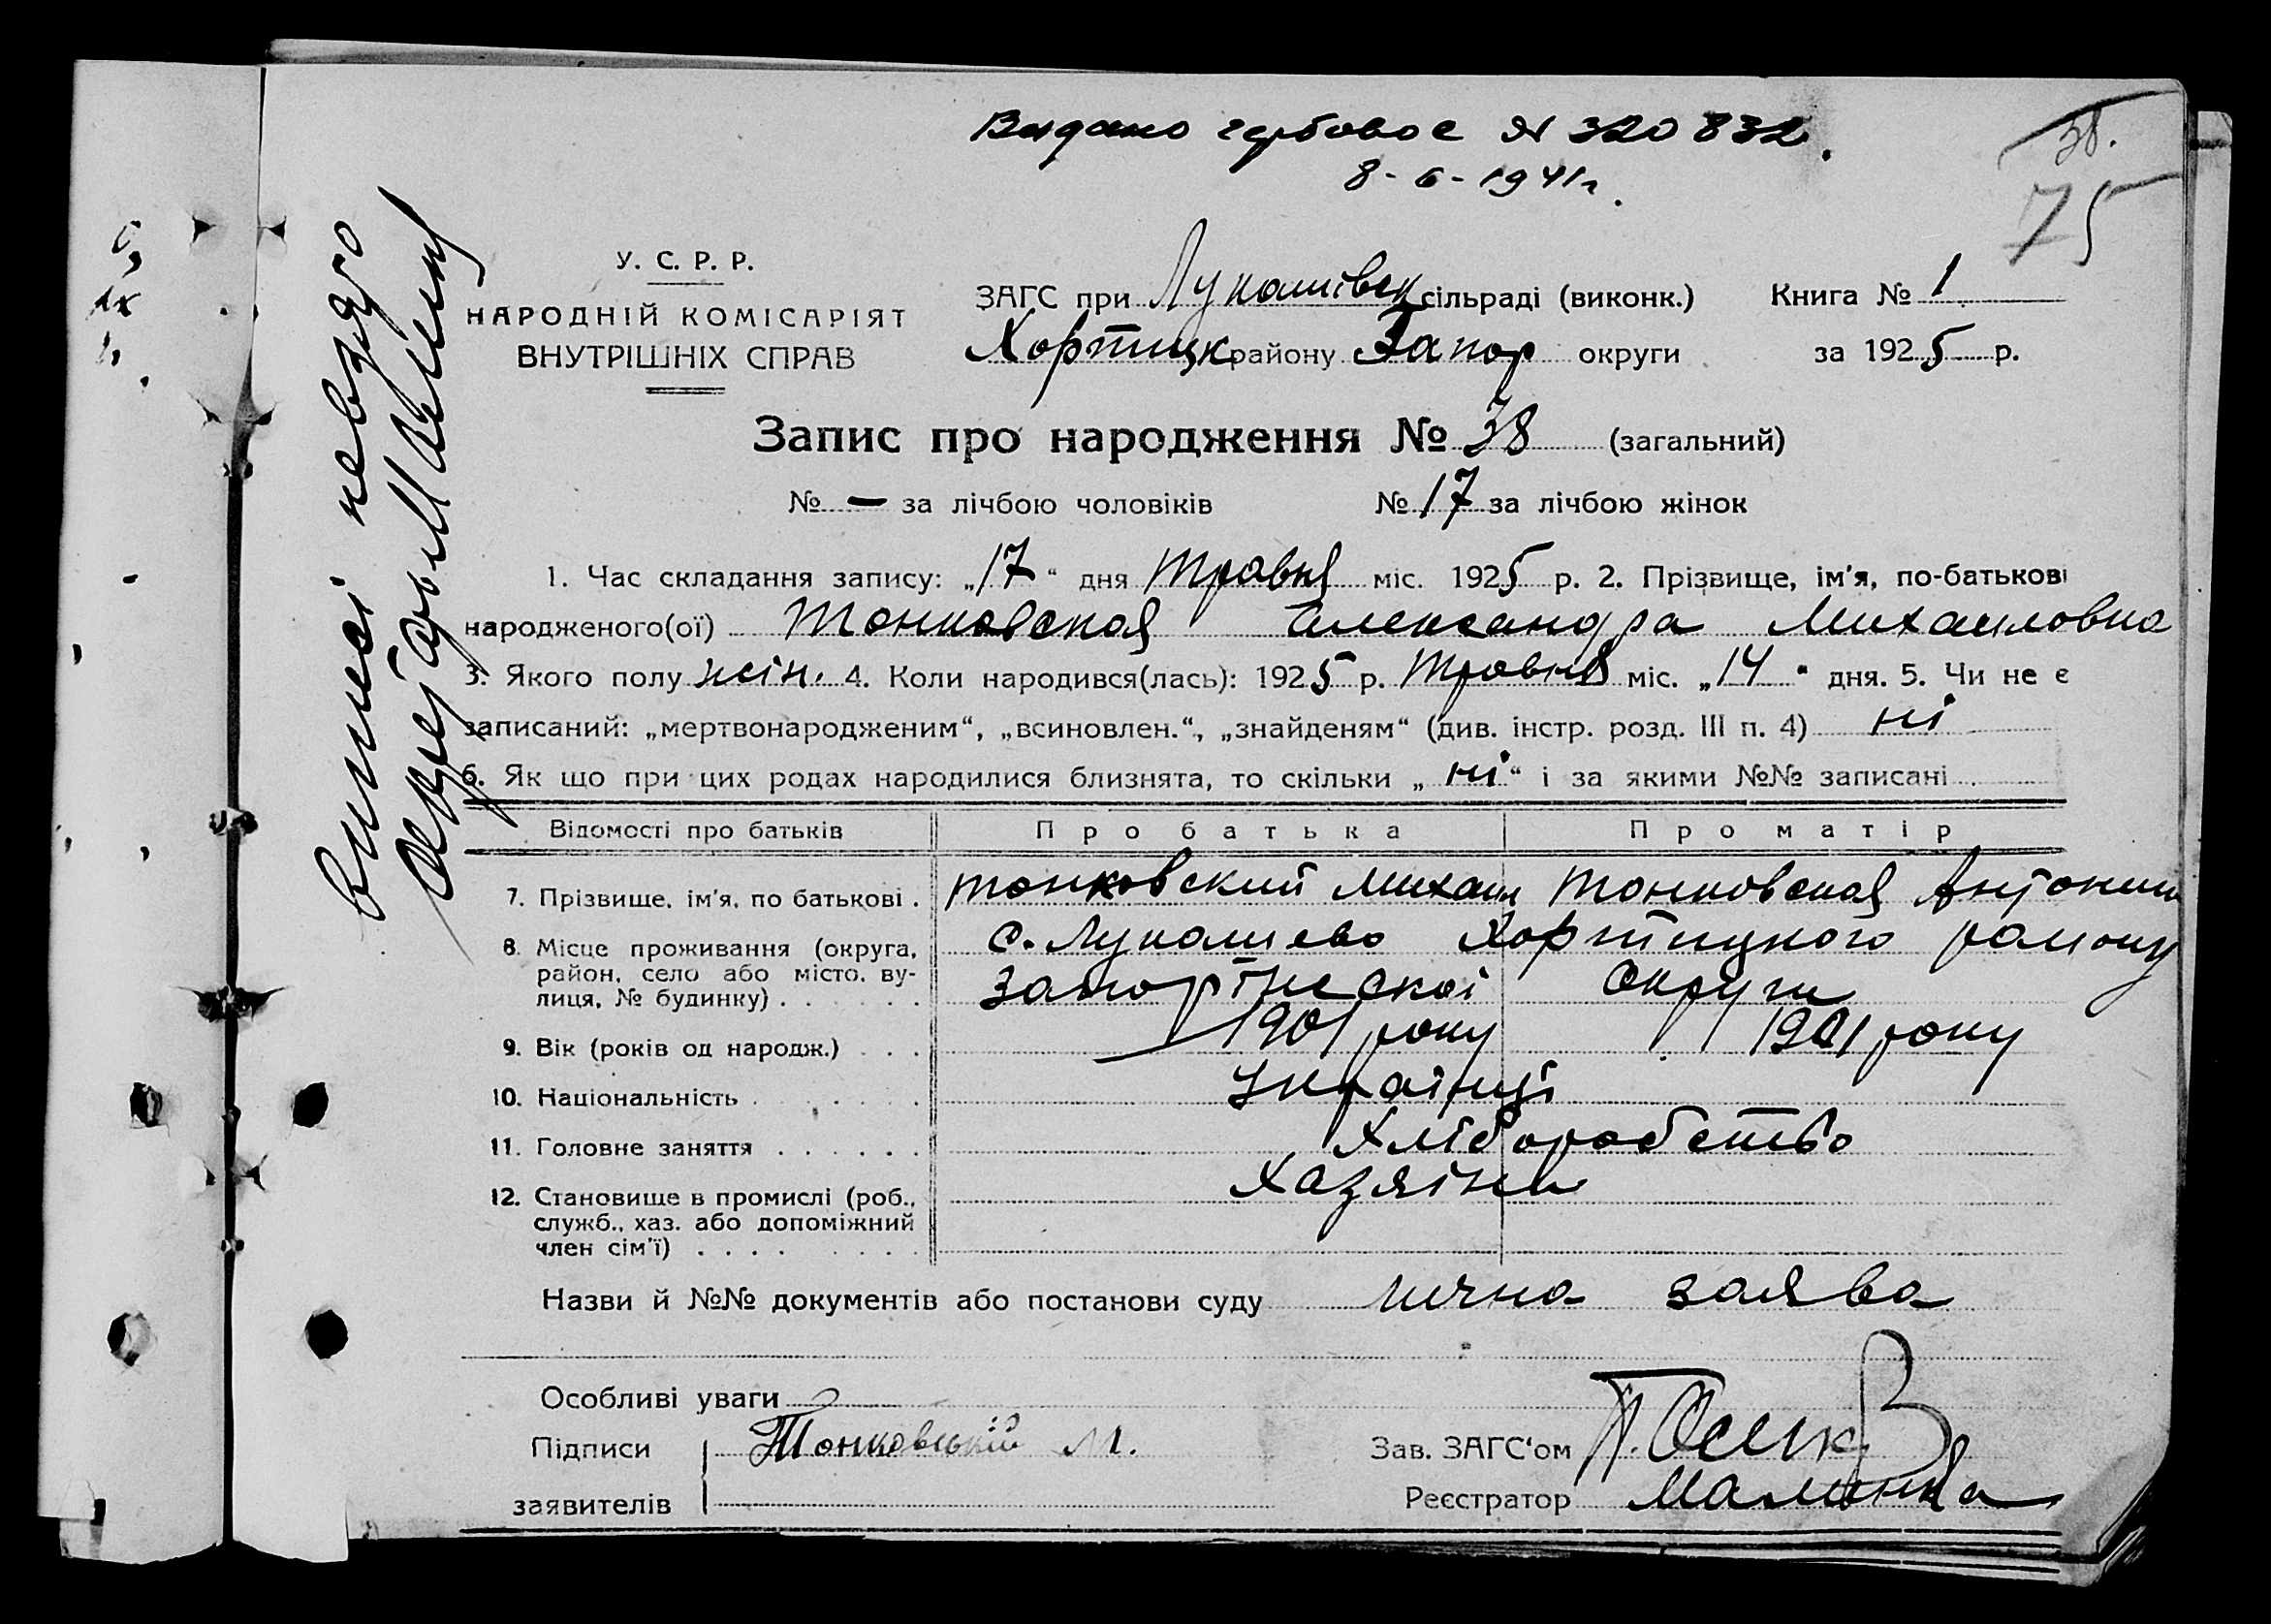 Видано гербовое № 320832.
8-6-1941г.
38.
75
У. С. Р. Р.
НАРОДНІЙ КОМІСАРІЯТ
ВНУТРІШНІХ СПРАВ
ЗАГС при Лукашівск сільраді (виконк.) Книга № 1
Хортицк району Запор округи за 1925 р.
Запис про народження № 38 (загальний)
№ — за лічбою чоловіків № 17 за лічбою жінок
1. Час складання запису: „17“ дня Травня міс. 1925 р. 2. Прізвище, ім'я, по-батькові
народженого(ої) Тонковская Александра Михаиловна
3. Якого полу жін. 4. Коли народився(лась): 1925 р. Травня міс. „14“ дня. 5. Чи не є
записаний: „мертвонародженим“, „всиновлен.“, „знайденям“ (див. інстр. розд. III п. 4) ні
6. Як що при цих родах народилися близнята, то скільки „ні“ і за якими №№ записані
Відомості про батьків Про батька Про матір
7. Прізвище, ім'я, по батькові . Тонковский Михаил Тонковская Антонин
8. Місце проживання (округа, с. Лукашево Хортицкого району
район, село або місто, ву-
лиця, № будинку) . . . . . . Запорізскоі Округи
9. Вік (років од народж.) . . . 1901 року 1901 року
10. Національність . . . . . . . Українці
11. Головне заняття . . . . . . Хліборобство
12. Становище в промислі (роб., Хазяіни
служб., хаз. або допоміжний
член сім'ї) . . . . . . . .
Назви й №№ документів або постанови суду лична заява
Особливі уваги
Підписи Тонковській М. Зав. ЗАГС'ом
заявителів Реєстратор
виписі невидно